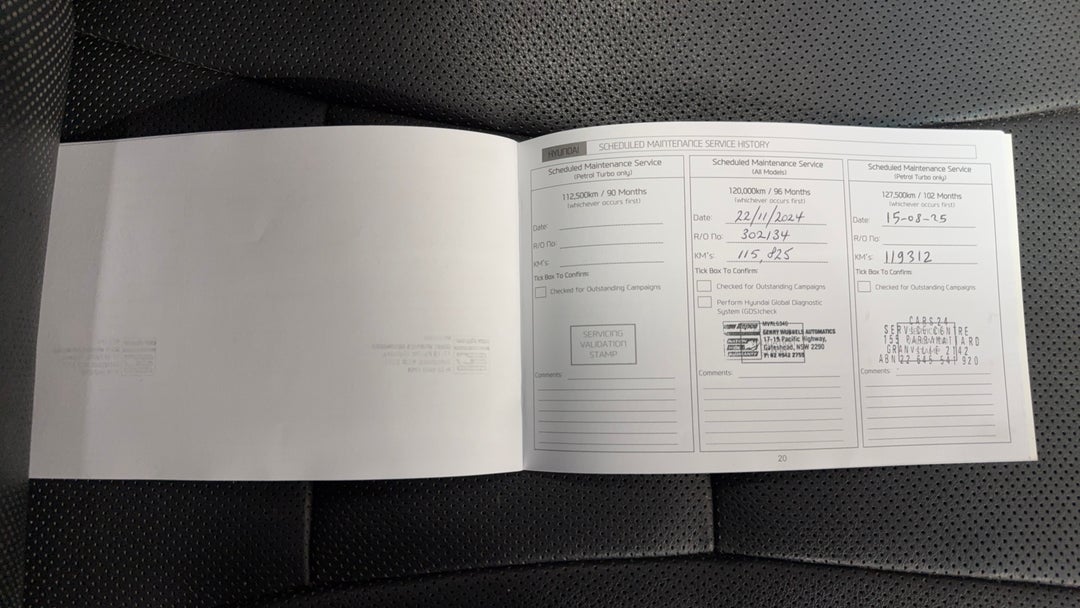 HYUNDAI SCHEDULED MAINTENANCE SERVICE HISTORY
Scheduled Maintenance Service
(Petrol Turbo only)
112,500km / 90 Months
(whichever occurs first)
Date:
R/O No:
KM's:
Tick Box To Confirm:
Checked for Outstanding Campaigns
SERVICING
VALIDATION
STAMP
Comments:
Scheduled Maintenance Service
(All Models)
120,000km / 96 Months
(whichever occurs first)
Date: 22/11/2024
R/O No: 302134
KM's: 115,825
Tick Box To Confirm:
Checked for Outstanding Campaigns
Perform Hyundai Global Diagnostic
System (GDS)check
Repco
GERRY WASSELS AUTOMATICS
17-19 Pacific Highway,
Gateshead, NSW 2290
Comments:
Scheduled Maintenance Service
(Petrol Turbo only)
127,500km / 102 Months
(whichever occurs first)
Date: 15-08-25
R/O No:
KM's: 119312
Tick Box To Confirm:
Checked for Outstanding Campaigns
CARS24
SERVICE CENTRE
GRANVILLE 2142
ABN 22 645 541 920
Comments:
20